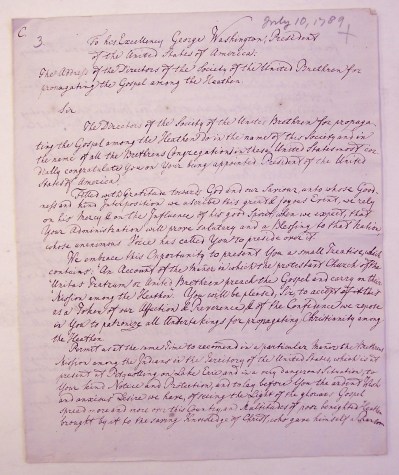 July 10, 1789
C
3.
To his Excellency George Washington, President
of the United States of America.
The Address of the Directors of the Society of the United Brethren for
propagating the Gospel among the Heathen
Sir
The Directors of the Society of the United Brethren for propaga
ting the Gospel among the Heathen do in the name of this Society and in
the name of all the Brethrens Congregations in these United States most cor
dially congratulate You on Your being appointed President of the United
States of America.
Filled with Gratitude towards God and our Saviour, unto whose Good
ness and kind Interposition we ascribe this great & joyous Event, we rely
on his Mercy & on the Influence of his good Spirit, when we expect, that
Your Administration will prove salutary and a Blessing to that Nation
whose unanimous Voice has called You to preside over it.
We embrace this Opportunity to present You a small Treatise, which
contains "An Account of the Manner in which the protestant Church of the
Unitas Fratrum or United Brethren preach the Gospel and carry on their
Mission among the Heathen. You will be pleased, Sir, to accept of it
as a Token of our Affection & Reverence, & of the Confidence we repose
in You to patronize all Undertakings for propagating Christianity among
the Heathen.
Permit us at the same Time to recommend in a particular Manner the Brethrens
Mission among the Indians in the Territory of the United States, which is at
present at Petquotting on Lake Erie and in a very dangerous Situation, to
Your kind Notice and Protection, and to lay before You the ardent Wish
and anxious Desire we have, of seeing the Light of the glorious Gospel
spread more and more over this Country, and Multitudes of poor benighted Heathen
brought by it to the saving Knowledge of Christ, who gave himself a Ransom